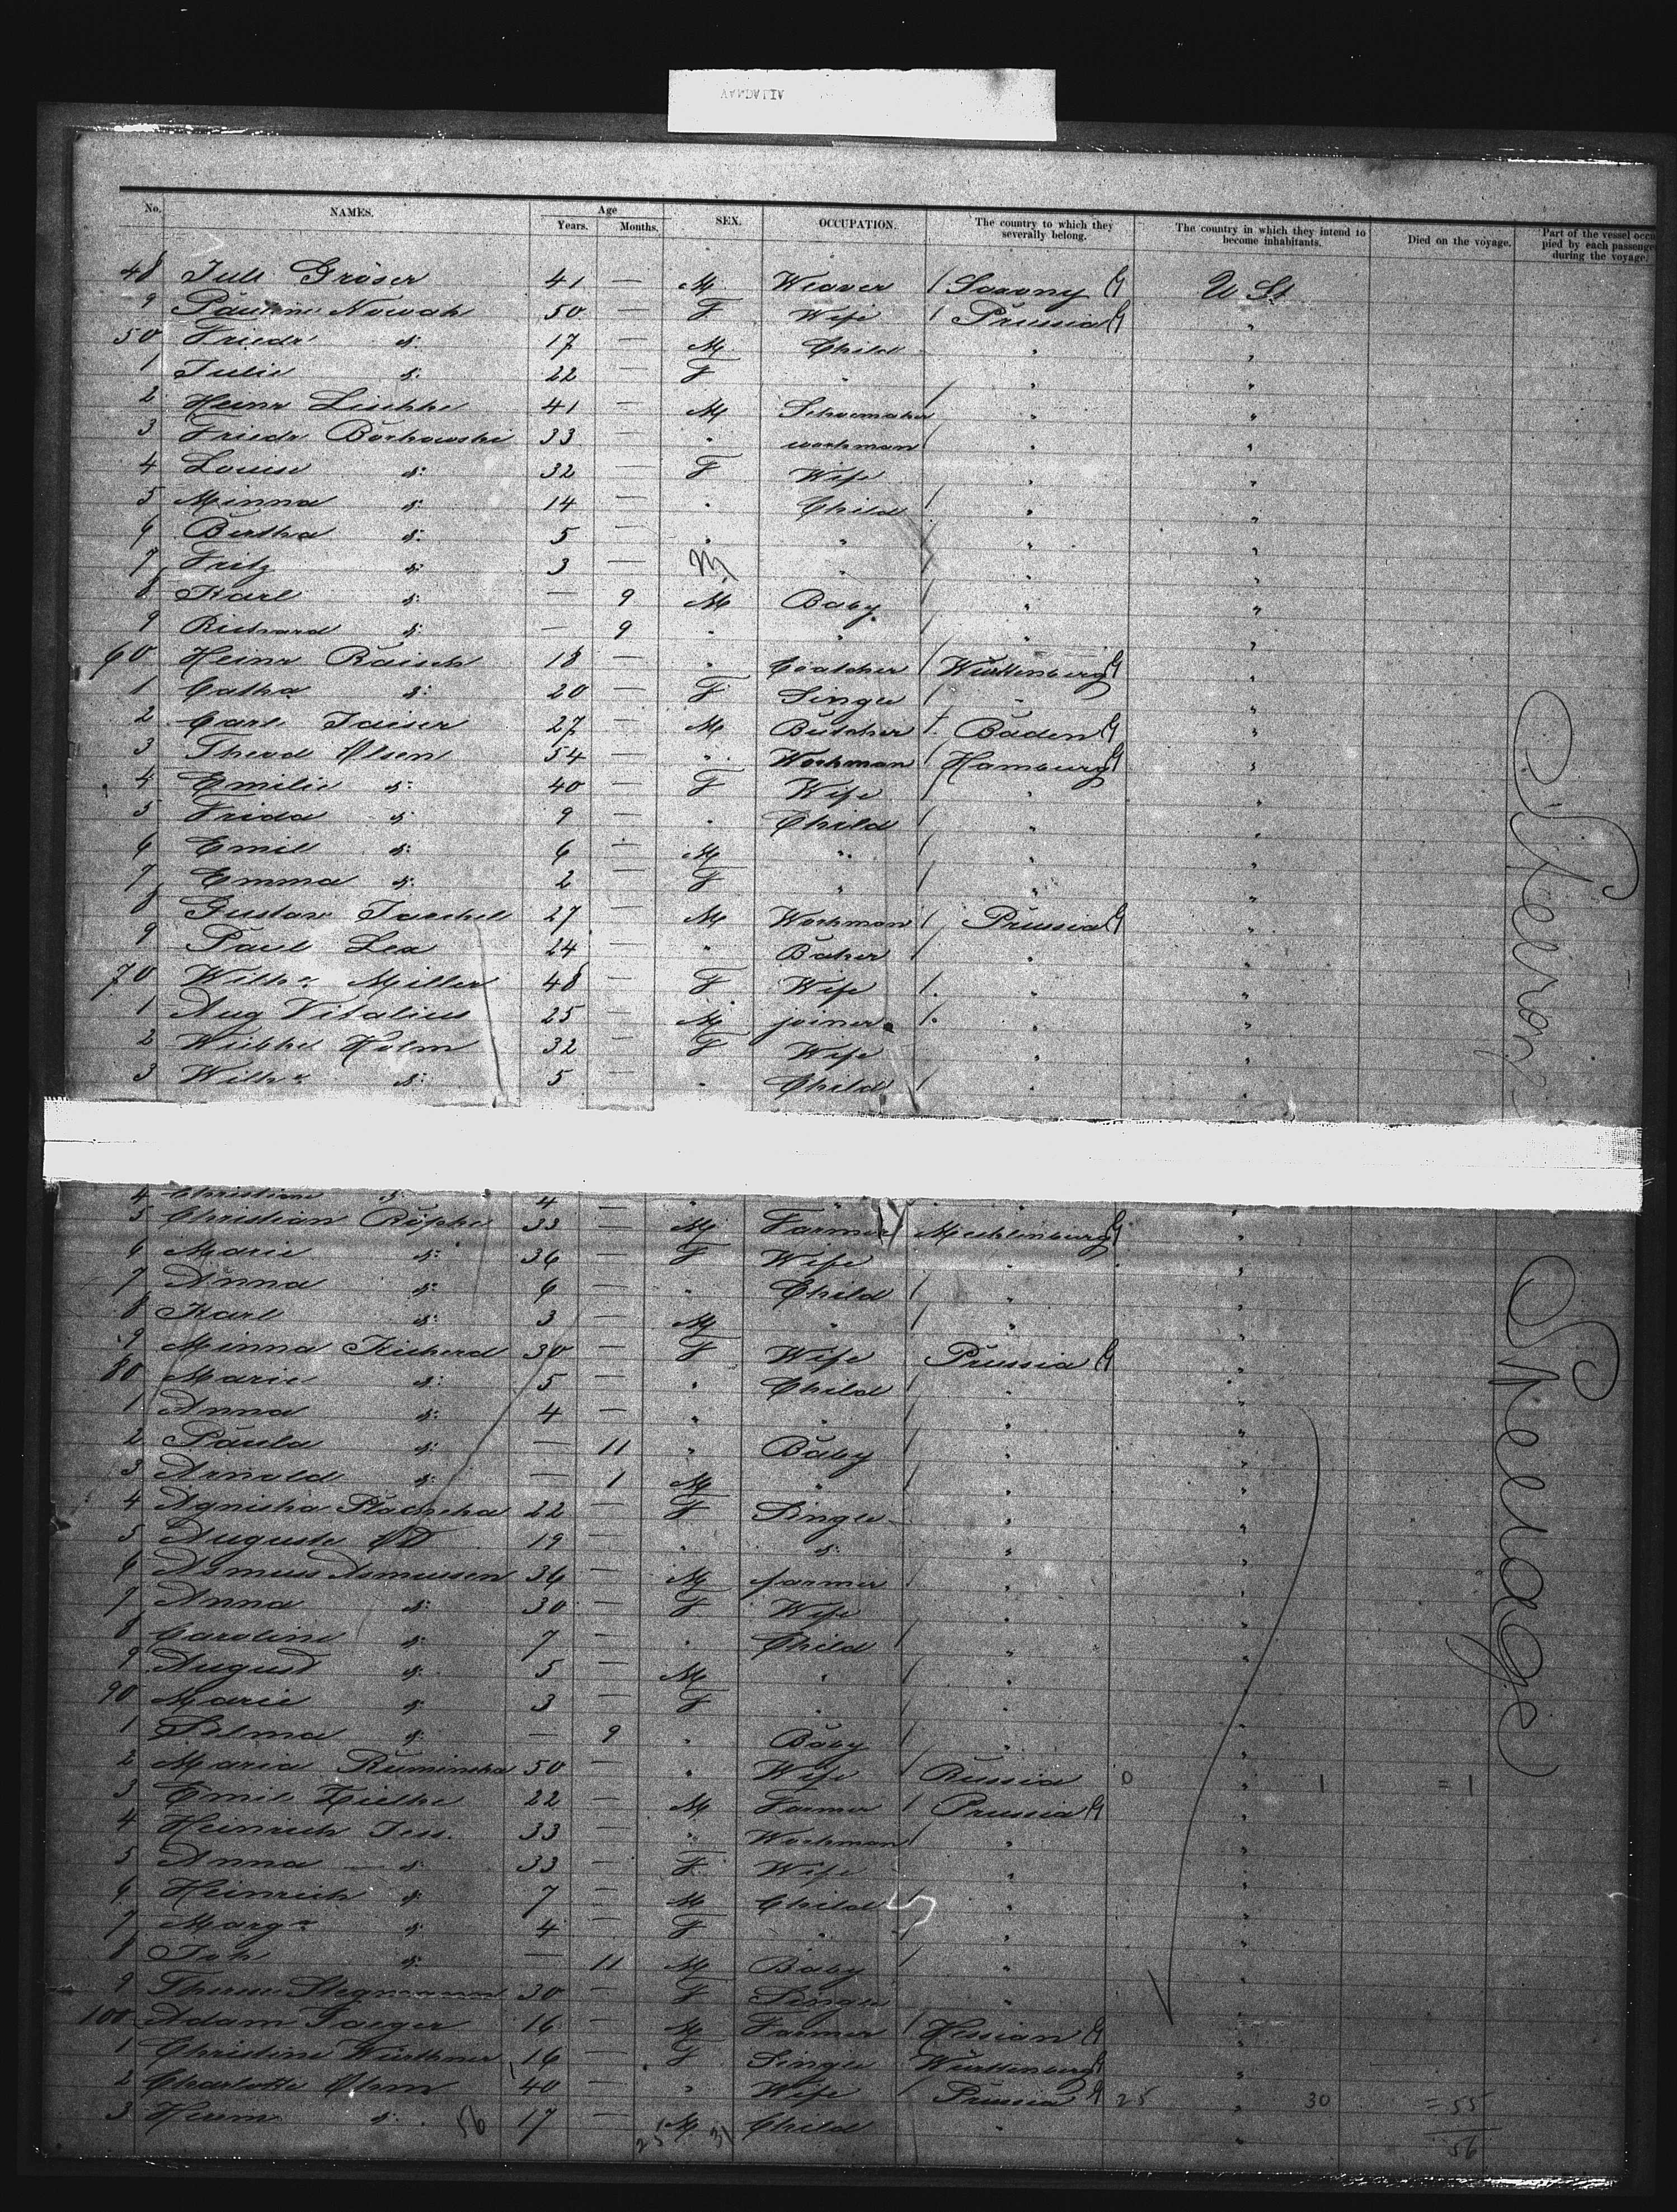 No. NAMES. Age Years. Months. SEX. OCCUPATION. The country to which they severally belong. The country in which they intend to become inhabitants. Died on the voyage. Part of the vessel occupied by each passenger during the voyage.
48 Jull Gröser 41 — M Weaver / Saxony G U St
9 Pauline Nowak 50 — F Wife / Prussia G "
50 Friedr d: 17 — M Child " "
1 Julie d: 22 — F " " "
2 Heinr Lischke 41 — M Schoemaker / " "
3 Friedr Borkowski 33 — " workman / " "
4 Louise d: 32 — F Wife " "
5 Minna d: 14 — " Child / " "
6 Bertha d: 5 — " " " "
7 Fritz d: 3 — M " " "
8 Karl d: — 9 M Baby / " "
9 Richard d: — 9 " " / " "
60 Heinr Raisch 18 — " / Württemberg G "
1 Catha d: 20 — F Single / " "
2 Carl Jaiser 27 — M Butcher / Baden G "
3 Theod Olsen 54 — " Workman / Hamburg G "
4 Emilie d: 40 — F Wife / " "
5 Frida d: 9 — " Child / " "
6 Emil d: 6 — M " / " "
7 Emma d: 2 — F " / " "
8 Gustav Jaeckel 27 — M Workman / Prussia G "
9 Paul Lex 24 — " Baker / " "
70 Wilhe Miller 48 — F Wife / " "
1 Aug Vitalius 25 — M joiner / " "
2 Wiebke Holm 32 — F Wife " "
3 Wilhe d: 5 — " Child / " "
4 Christine d: 4 — " " " "
5 Christian Röpke 33 — M Farmer / Mecklenburg G "
6 Marie d: 36 — F Wife " "
7 Anna d: 6 — " Child / " "
8 Karl d: 3 — M " / " "
9 Minna Kicherd 30 — F Wife Prussia G "
80 Marie d: 5 — " Child / " "
1 Anna d: 4 — " " / " "
2 Paula d: — 11 " Baby / " "
3 Arnold d: — 1 M " / " "
4 Agnieska 22 — F Single " "
5 Auguste Ott 19 — " d: " "
6 Asmus Asmussen 36 — M farmer / " "
7 Anna d: 30 — F Wife " "
8 Caroline d: 7 — " Child / " "
9 August d: 5 — M " / " "
90 Marie d: 3 — F " / " "
1 Selma d: — 9 " Baby / " "
2 Maria Ruminska 50 — " Wife / Russia 0 " 1 = 1
3 Emil Zielke 22 — M Farmer / Prussia G "
4 Heinrich Jess. 33 — " Workman / " "
5 Anna d: 33 — F Wife " "
6 Heinrich d: 7 — M Child / " "
7 Marge d: 4 — F " / " "
8 Joh d: — 11 M Baby / " "
9 Therese Stegmann 30 — F Single " "
100 Adam Jaeger 16 — M Farmer / Hessian G "
1 Christine Würthner 16 — F Single Württemberg G "
2 Charlotte Ohm 40 — " Wife / Prussia G 25 " 30 = 55
3 Herm d: 56 17 — 25 M 31 Child " " 56
Steerage
Steerage